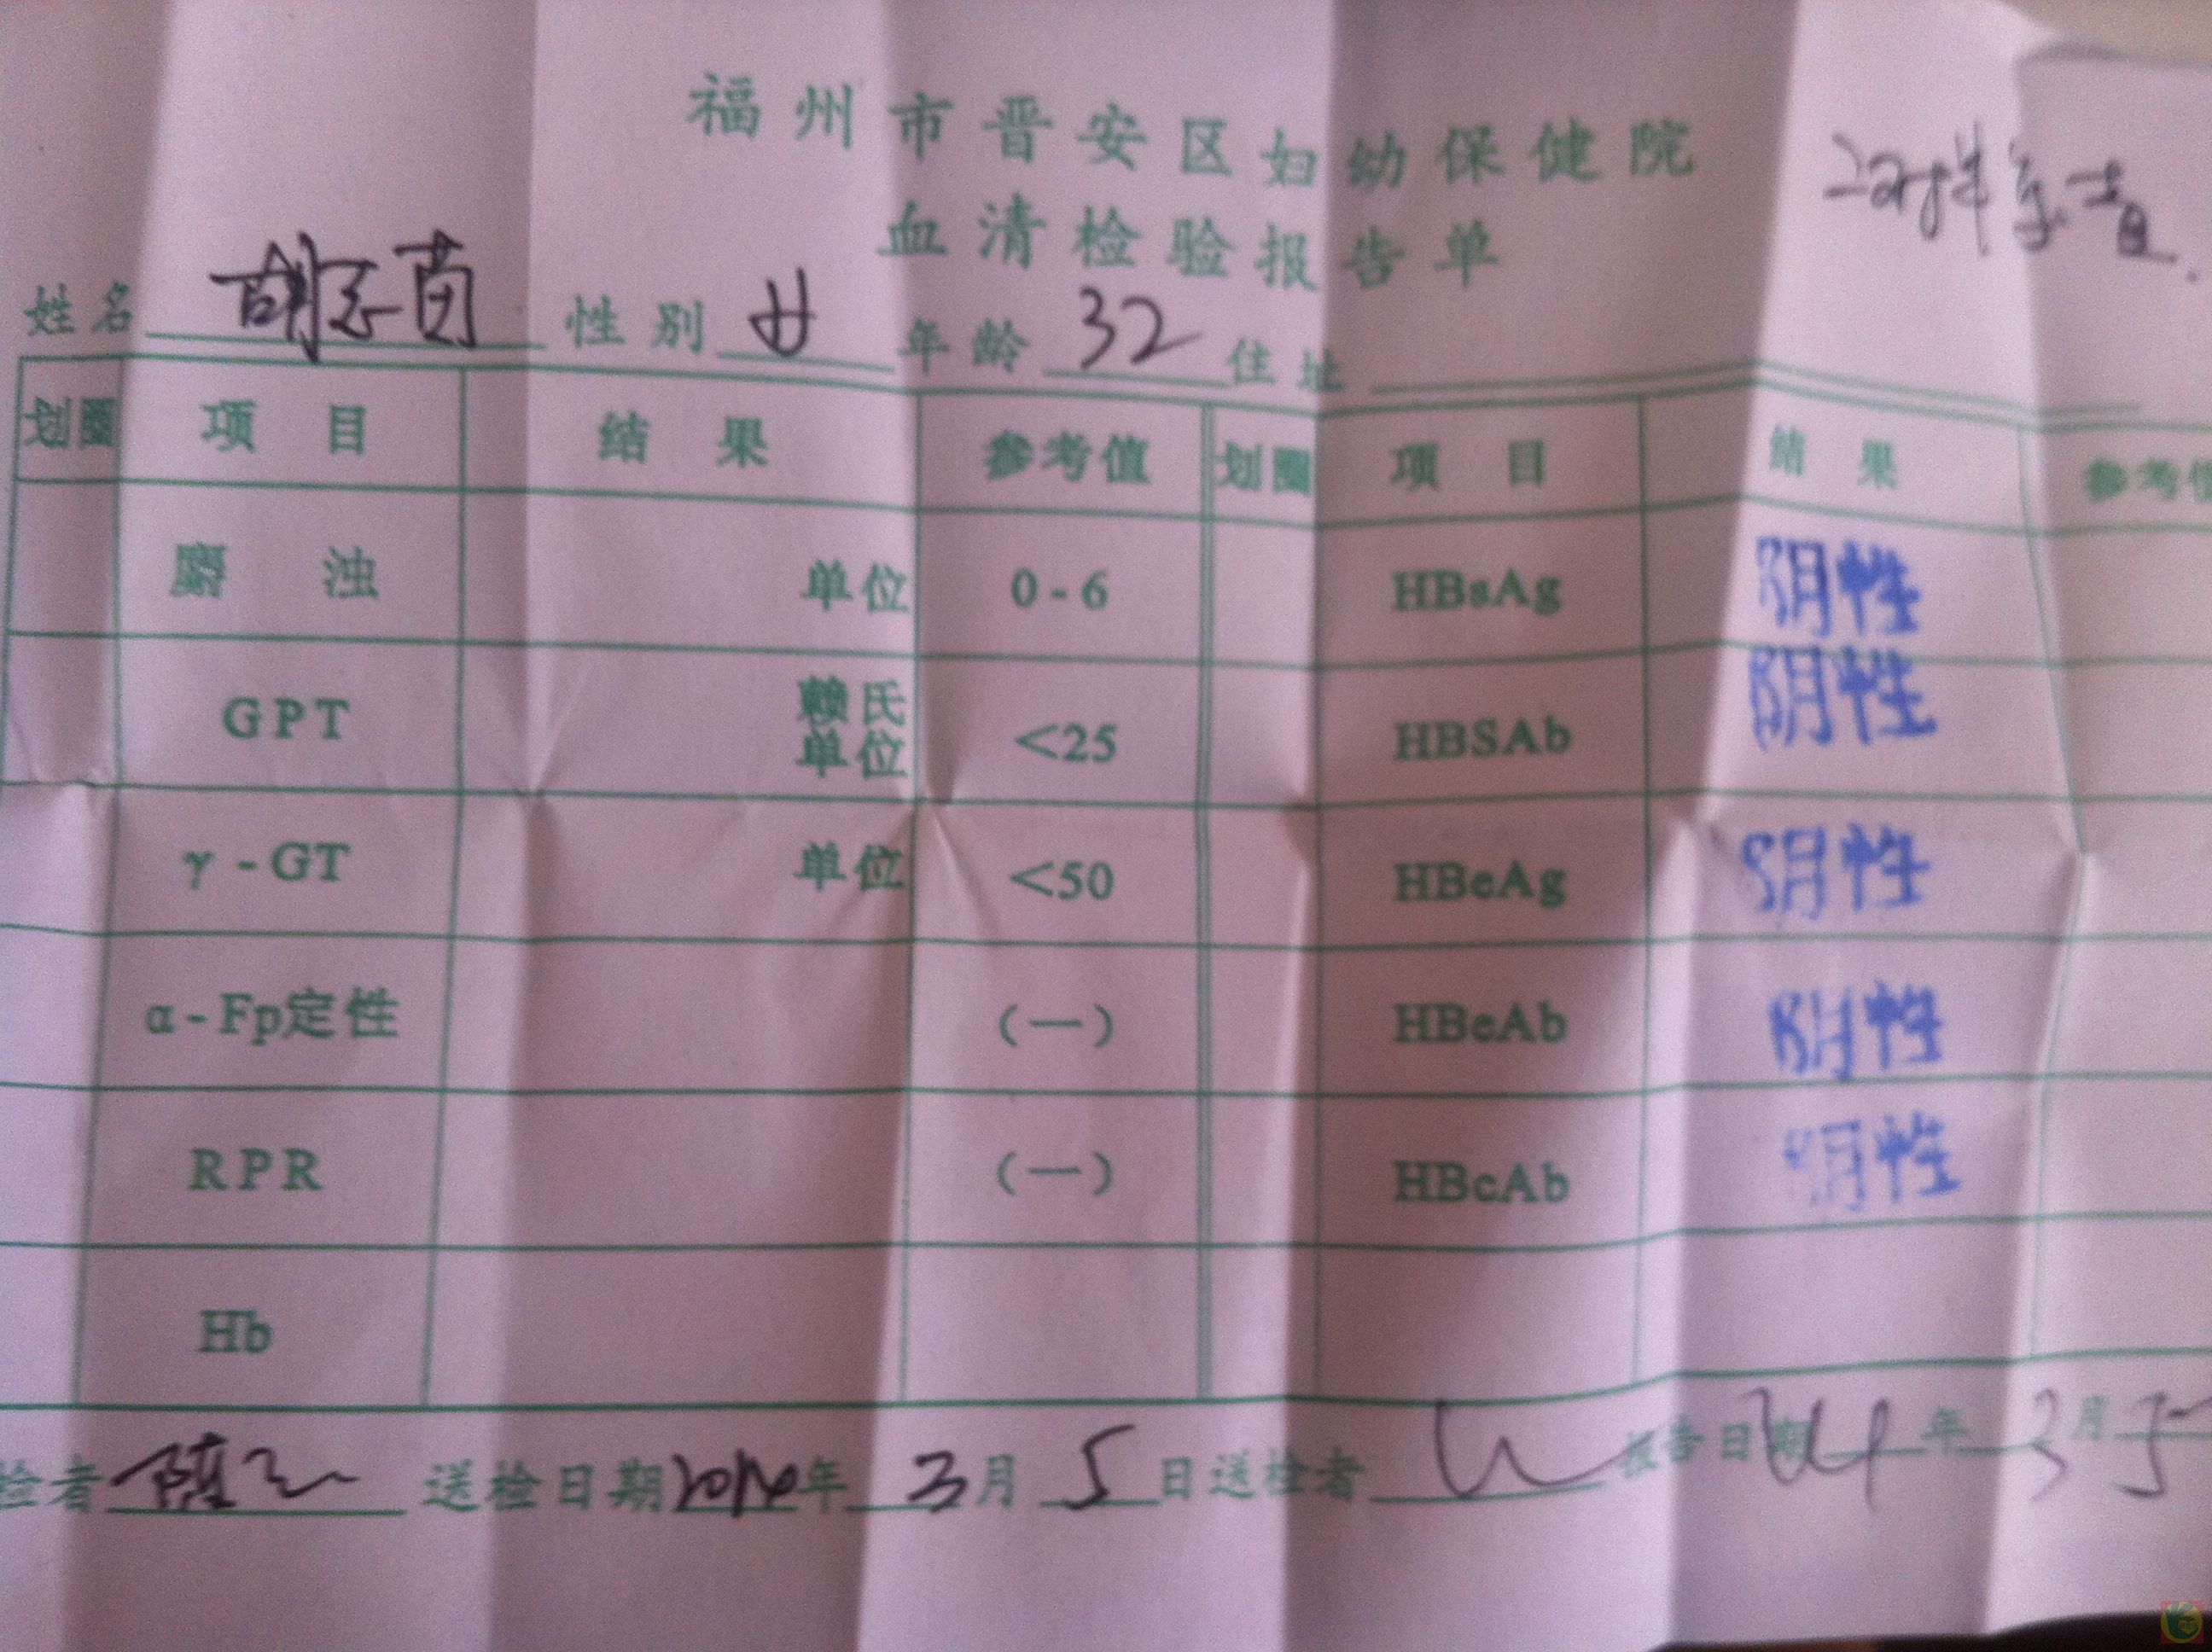 福州市晋安区妇幼保健院
血清检验报告单
姓名 胡志茵 性别 女 年龄 32 住址
划圈 项目 结果 参考值 划圈 项目 结果 参考值
麝浊 单位 0-6 HBsAg 阴性
GPT 赖氏单位 <25 HBSAb 阴性
γ-GT 单位 <50 HBeAg 阴性
α-Fp定性 (一) HBeAb 阴性
RPR (一) HBcAb 阴性
Hb
检者 送检日期 2014年 3月 5日 送检者 报告日期 14年 3月 5